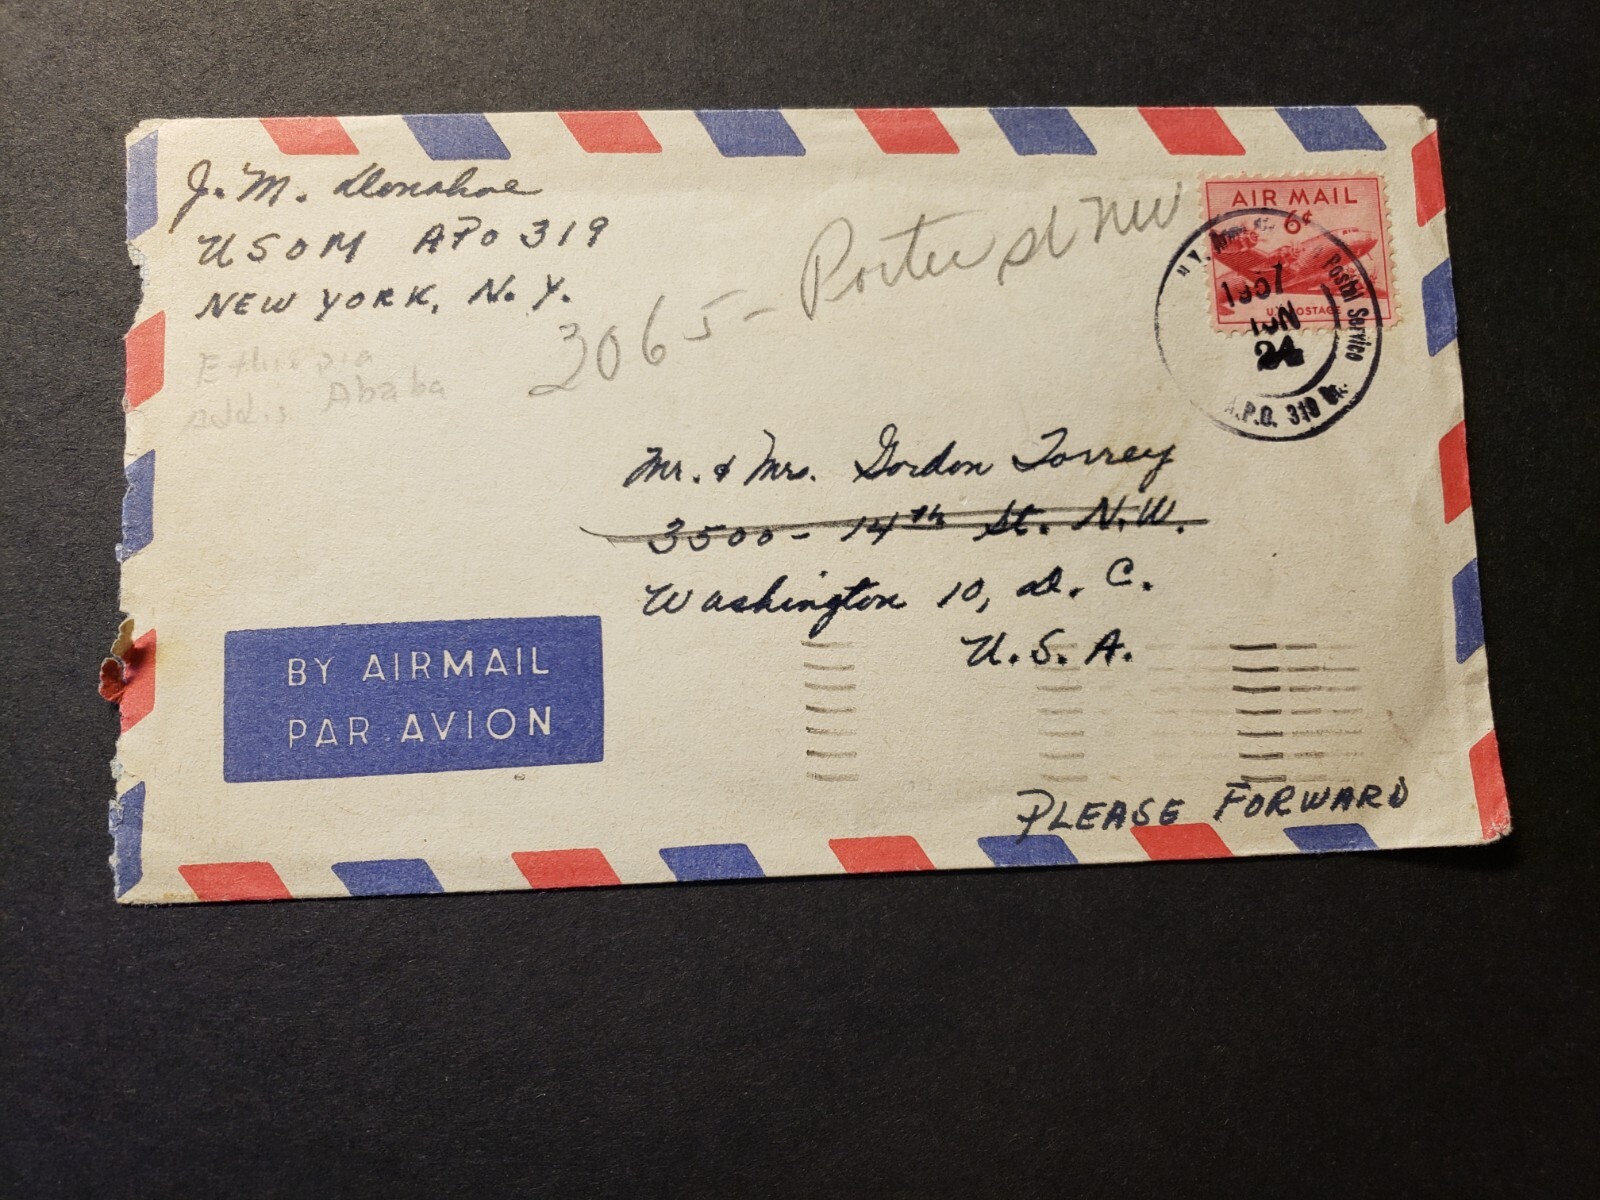 J. M. Donahoe
USOM APO 319
NEW YORK, N.Y.
Ethiopia
Addis Ababa
3065 - Porter St NW
AIR MAIL
6¢
U.S. POSTAGE
1957
JUN
24
Postal Service
A.P.O. 319
Mr. & Mrs. Gordon Torrey
3500 - 14th St. N.W.
Washington 10, D.C.
U.S.A.
BY AIRMAIL
PAR AVION
PLEASE FORWARD